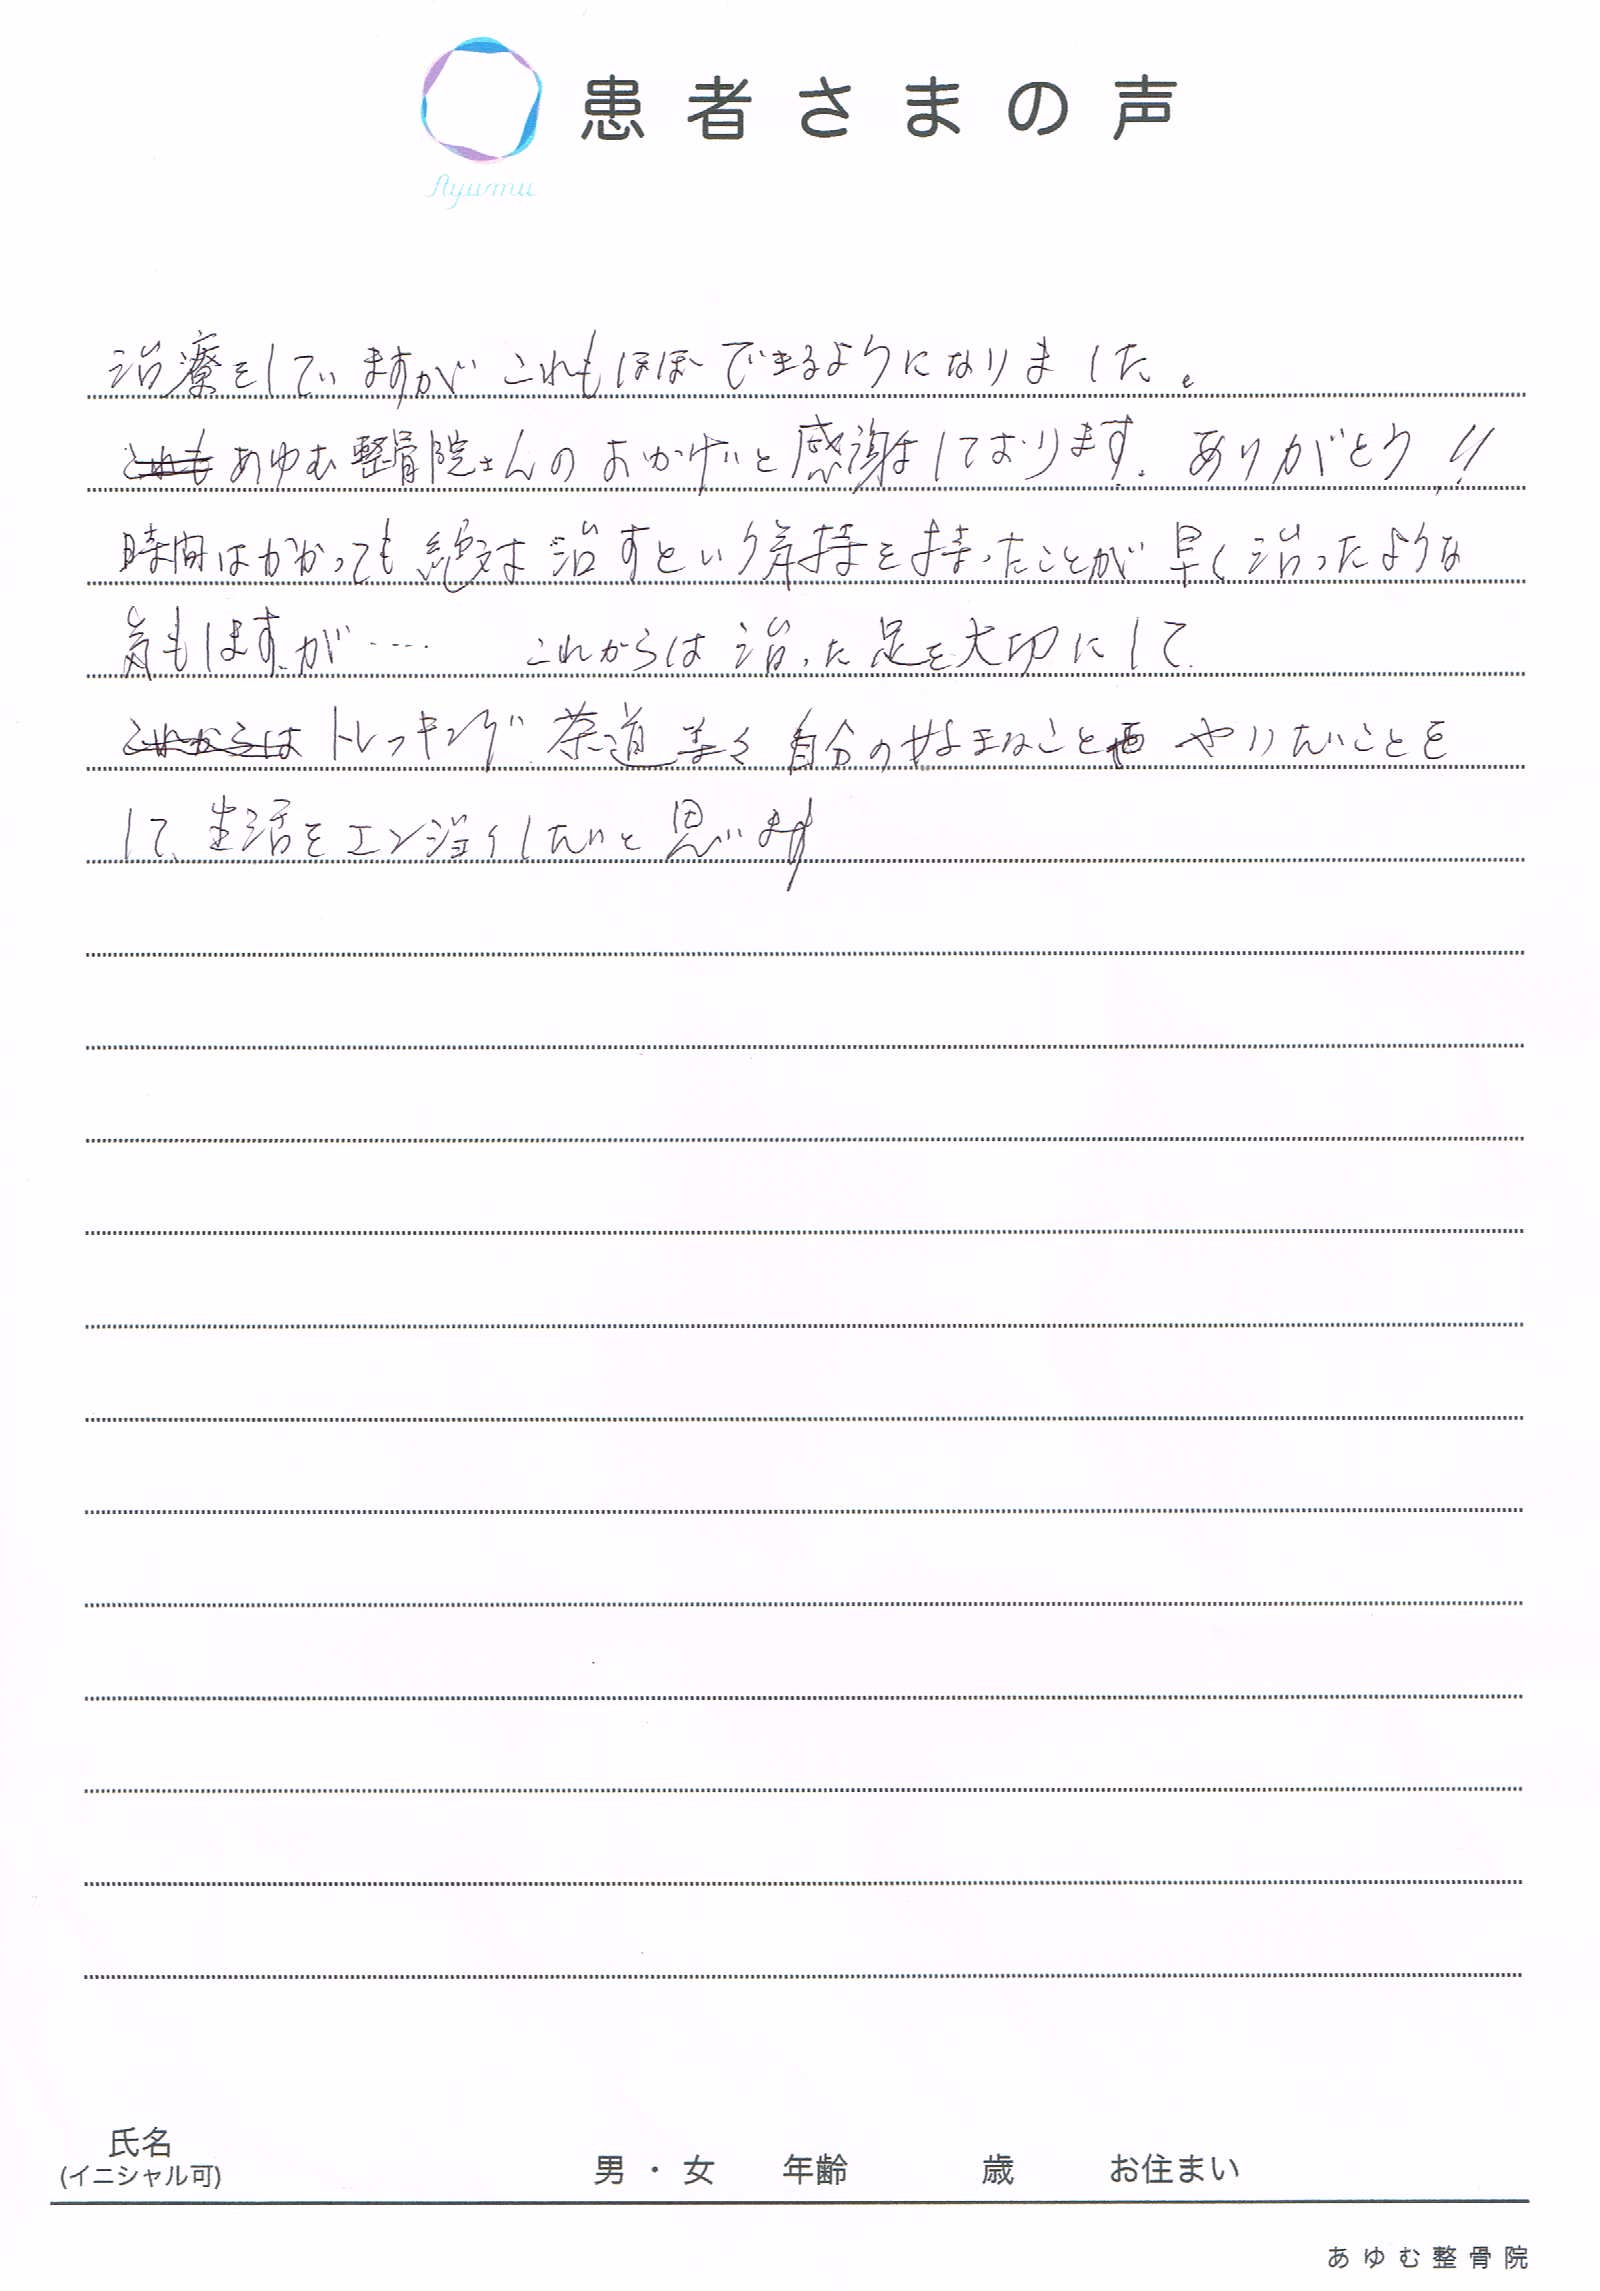 患者さまの声
Ayumu
治療をしていますが これもほぼできるようになりました。
これも あゆむ整骨院さんのおかげと感謝しております。ありがとう!!
時間はかかっても絶対治すという気持を持ったことが早く治ったような
気もしますが‥‥ これからは治った足を大切にして、
これからは トレッキング、茶道 等々 自分の好きなこと やりたいことを
して、生活をエンジョイしたいと思います
氏名
(イニシャル可) 男・女 年齢 歳 お住まい
あゆむ整骨院